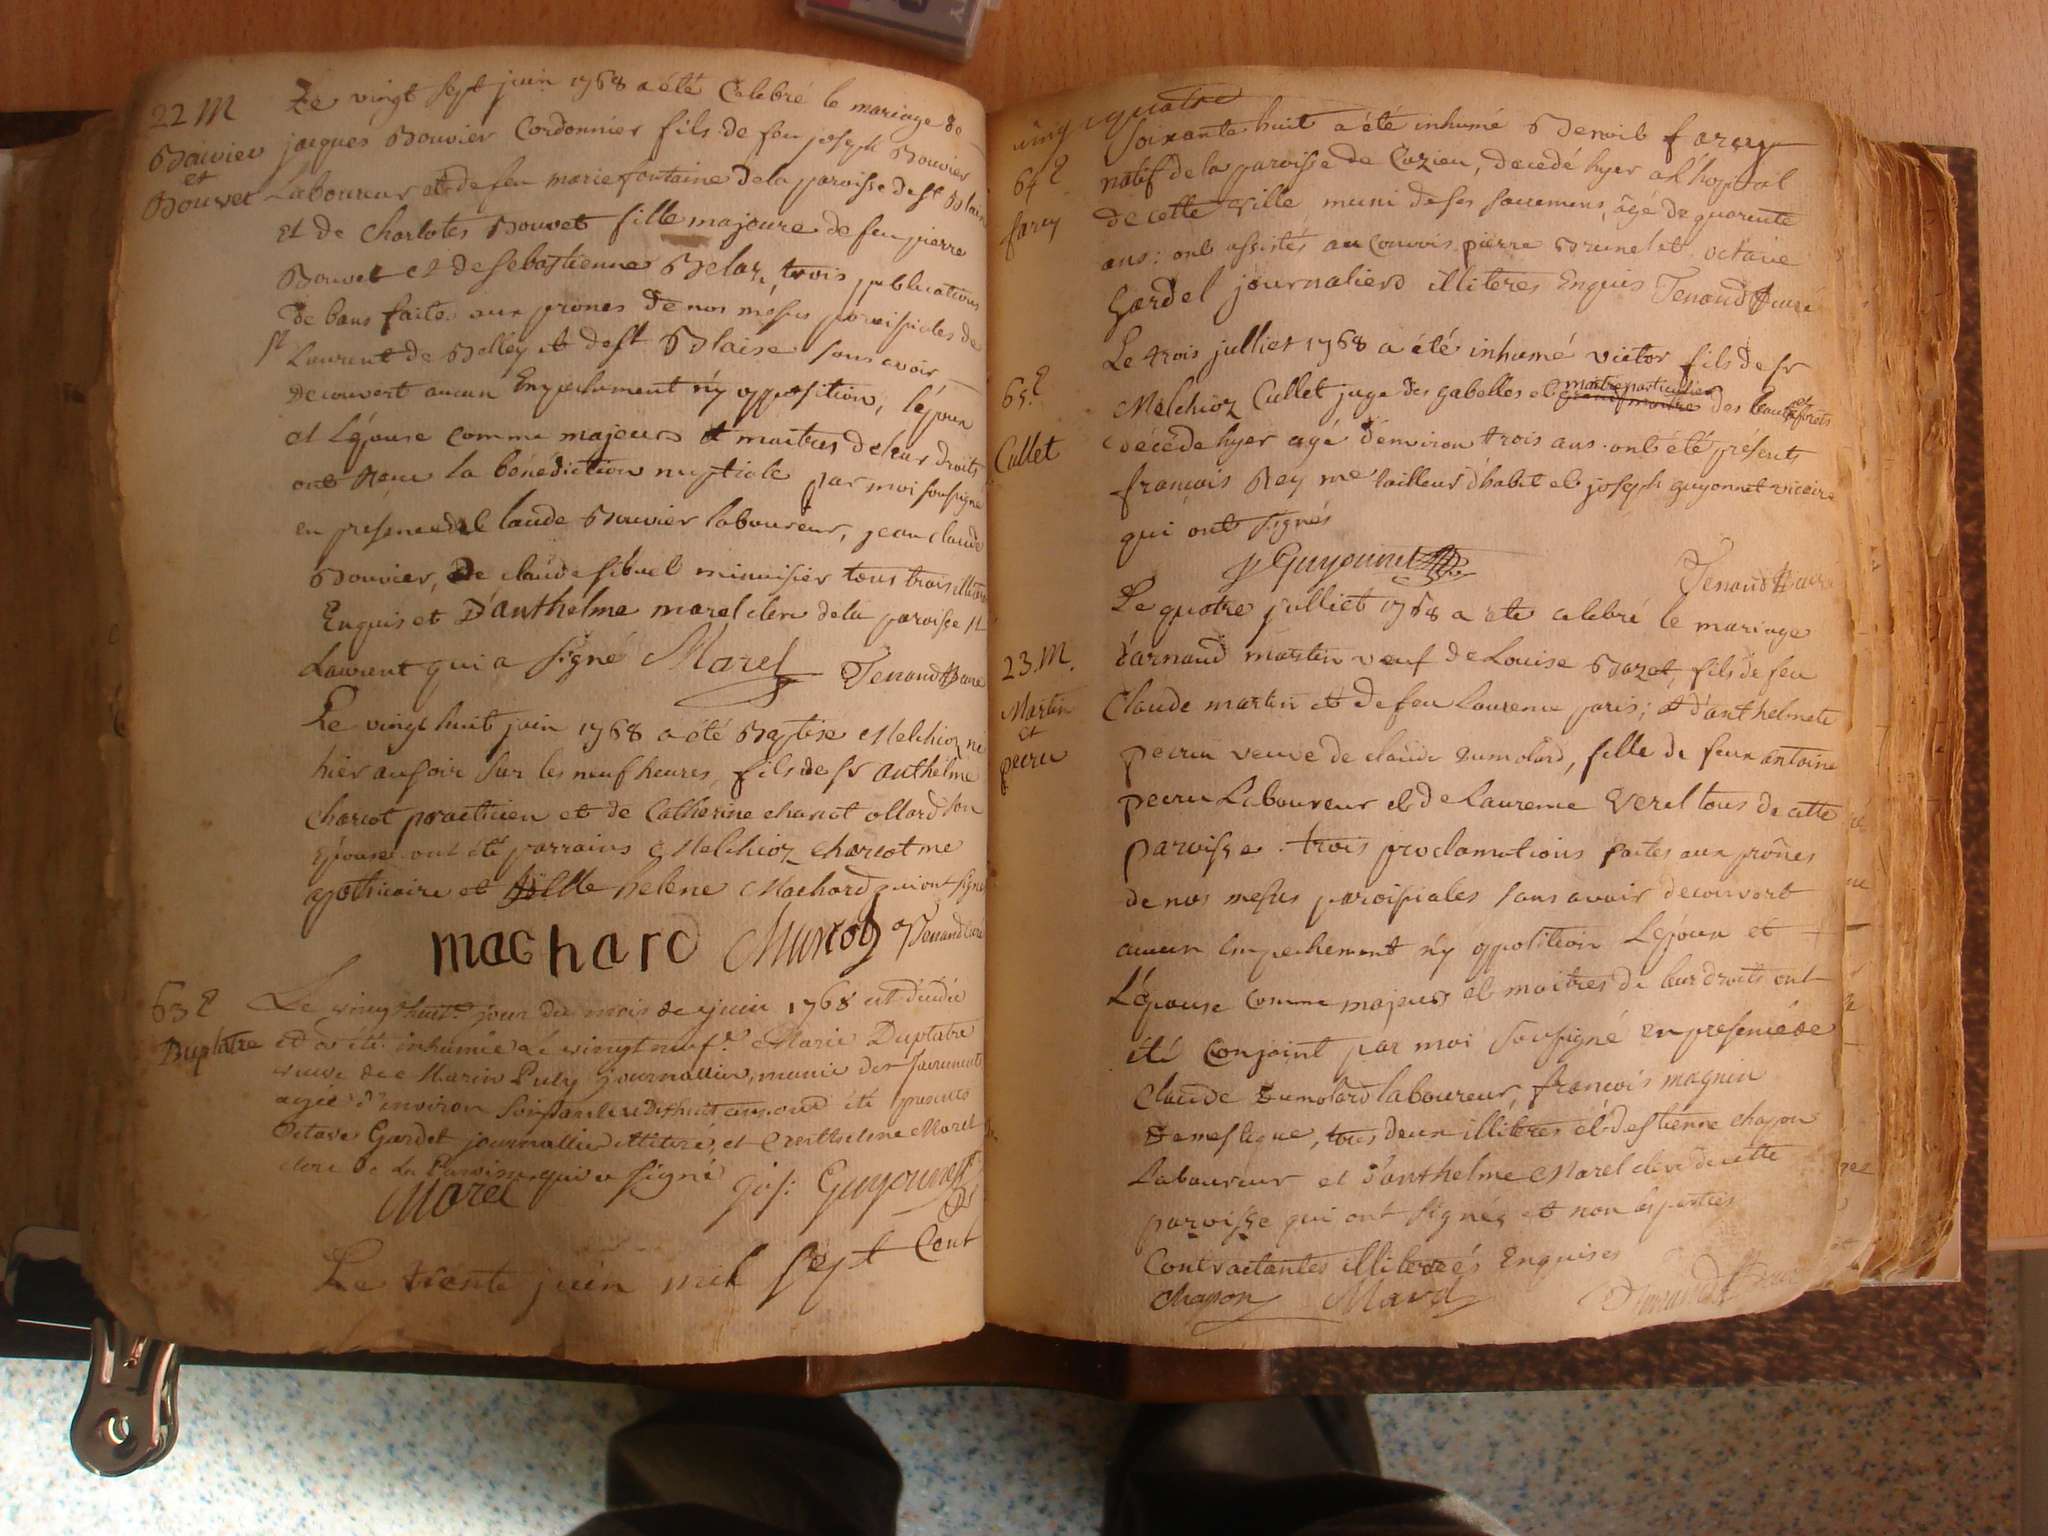 22 M
Bouvier
et
Bouvet
Le vingt sept juin 1768 a été Celebré le mariage de
jacques Bouvier Cordonnier fils de feu joseph Bouvier
Laboureur et de feu marie fontaine de la paroisse de st Blaise
et de charlotes Bouvet fille majeure de feu pierre
Bouvet et de sebastienne Belar, trois publications
de bans faites aux prones de nos messes paroissiales de
st Laurent de Belley et de st Blaise sans avoir
decouvert aucun Empechement n'y opposition, l'époux
et L'épouse comme majeurs et maitres de leurs droits
ont reçu la bénédiction nuptiale par moi soussigné
en presence de Claude Bouvier laboureur, jean claude
Bouvier, de claude sibuel minuisier tous trois illiteres
Enquis et D'anthelme marel clerc de la paroisse st
Laurent qui a signé Marel Tenand Curé
Le vingt huit juin 1768 a été Baptisé Melchior né
hier au soir sur les neuf heures, fils de sr anthelme
charcot practicien et de Catherine charcot ollard son
épouse ont été parrains Melchior charcot me
apothicaire et helene Machard qui ont signé
machard Charcot Tenand curé
63 e
Duplatre
Le vingt huit.e jour du mois de juin 1768 est décédée
et a été inhumée Le vingt neuf.e Marie Duplatre
veuve de Marin Puly journallier, munie des sacrements
agée d'environ soixante et dixhuit ans ont été presents
Octave Gardet journallier illiteré, et Anthelme Marel
clerc de La Paroisse qui a signé
Marel jos: Guyonnet
Le trente juin mil sept Cent
vingt quatre
64 e
farcy
soixante huit a été inhumé Benoit farcy
natif de la paroisse de Cuzieu, decedé hyer a l'hopital
de cette ville, muni de ses sacremens, âgé de quarente
ans: ont assistés au convois pierre Brunet et octave
Gardel journaliers illiteres Enquis Tenand Curé
65.e
Cullet
Le trois julliet 1768 a été inhumé victor fils de sr
Melchior Cullet juge des gabelles et grand maitre maitre particulier des Eaux et forets
décédé hyer agé d'environ trois ans. ont été présents
françois Rey me tailleur d'habit et joseph guyonnet vicaire
qui ont signés
J Guyonnet Tenand Curé
23. M.
Martin
et
pecru
Le quatre julliet 1768 a ete celebré le mariage
d'arnaud martin veuf de Louise Bazet, fils de feu
Claude martin et de feu Laurence paris; et d'anthelmete
pecru veuve de claude Dumolard, fille de feux antoine
pecru Laboureur et de Laurence Verel tous de cette
paroisse. trois proclamations faites aux prônes
de nos messes paroissiales sans avoir decouvert
aucun Empechement n'y opposition L'époux et
L'épouse comme majeurs et maitres de leur droits ont
été conjoint par moi soussigné en presence de
Claude Dumolard laboureur, françois magnin
Domestique, tous deux illiteres et d'estienne chapon
Laboureur et d'anthelme Marel clerc de cette
paroisse qui ont signés et non les parties
Contractantes illiterées Enquises
chapon Marel Tenand Curé